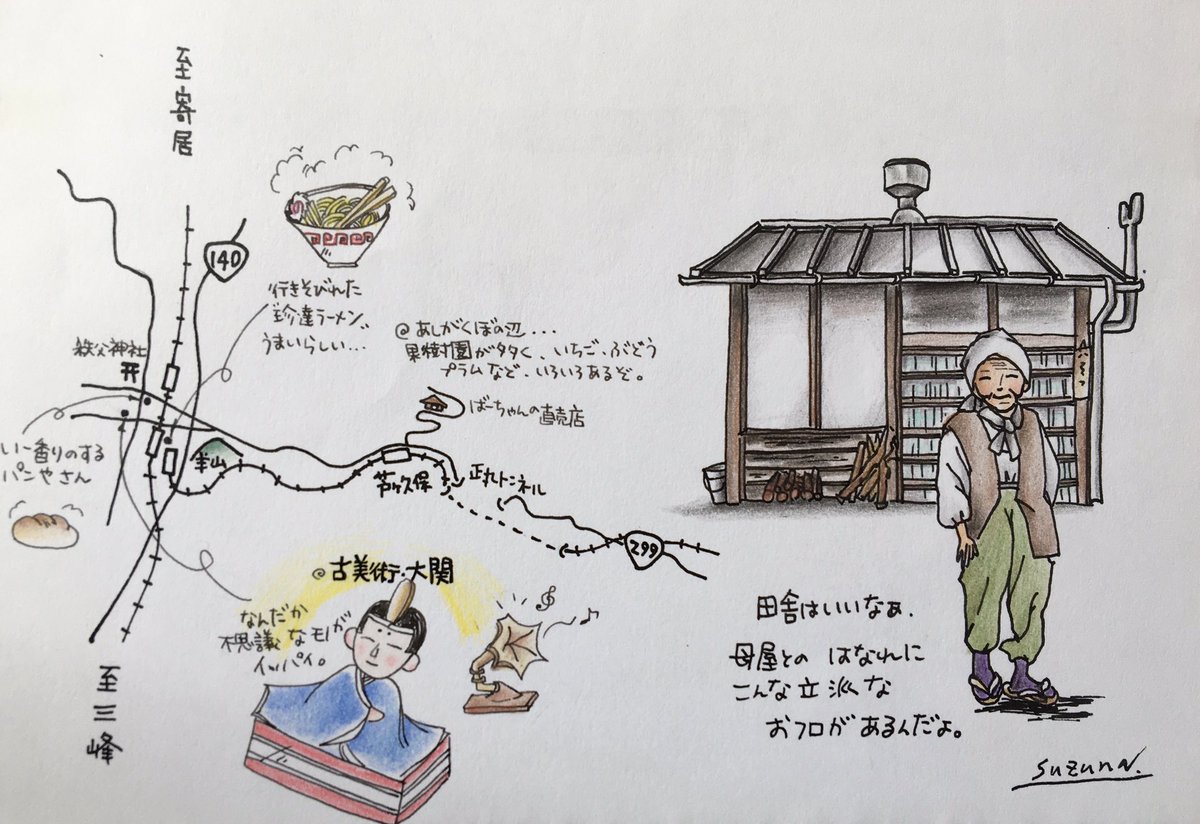 至寄居
140
行きそびれた
珍達ラーメン、
うまいらしい...
@あしがくぼの辺...
果樹園が多く、いちご、ぶどう
プラムなど、いろいろあるぞ。
ばーちゃんの直売店
秩父神社
い〜香りのする
パンやさん
羊山
芦ヶ久保
正丸トンネル
299
@古美術・大関
なんだか
不思議なモノが
イッパイ。
至三峰
田舎はいいなぁ、
母屋との はなれに
こんな立派な
おフロがあるんだよ。
suzunN.